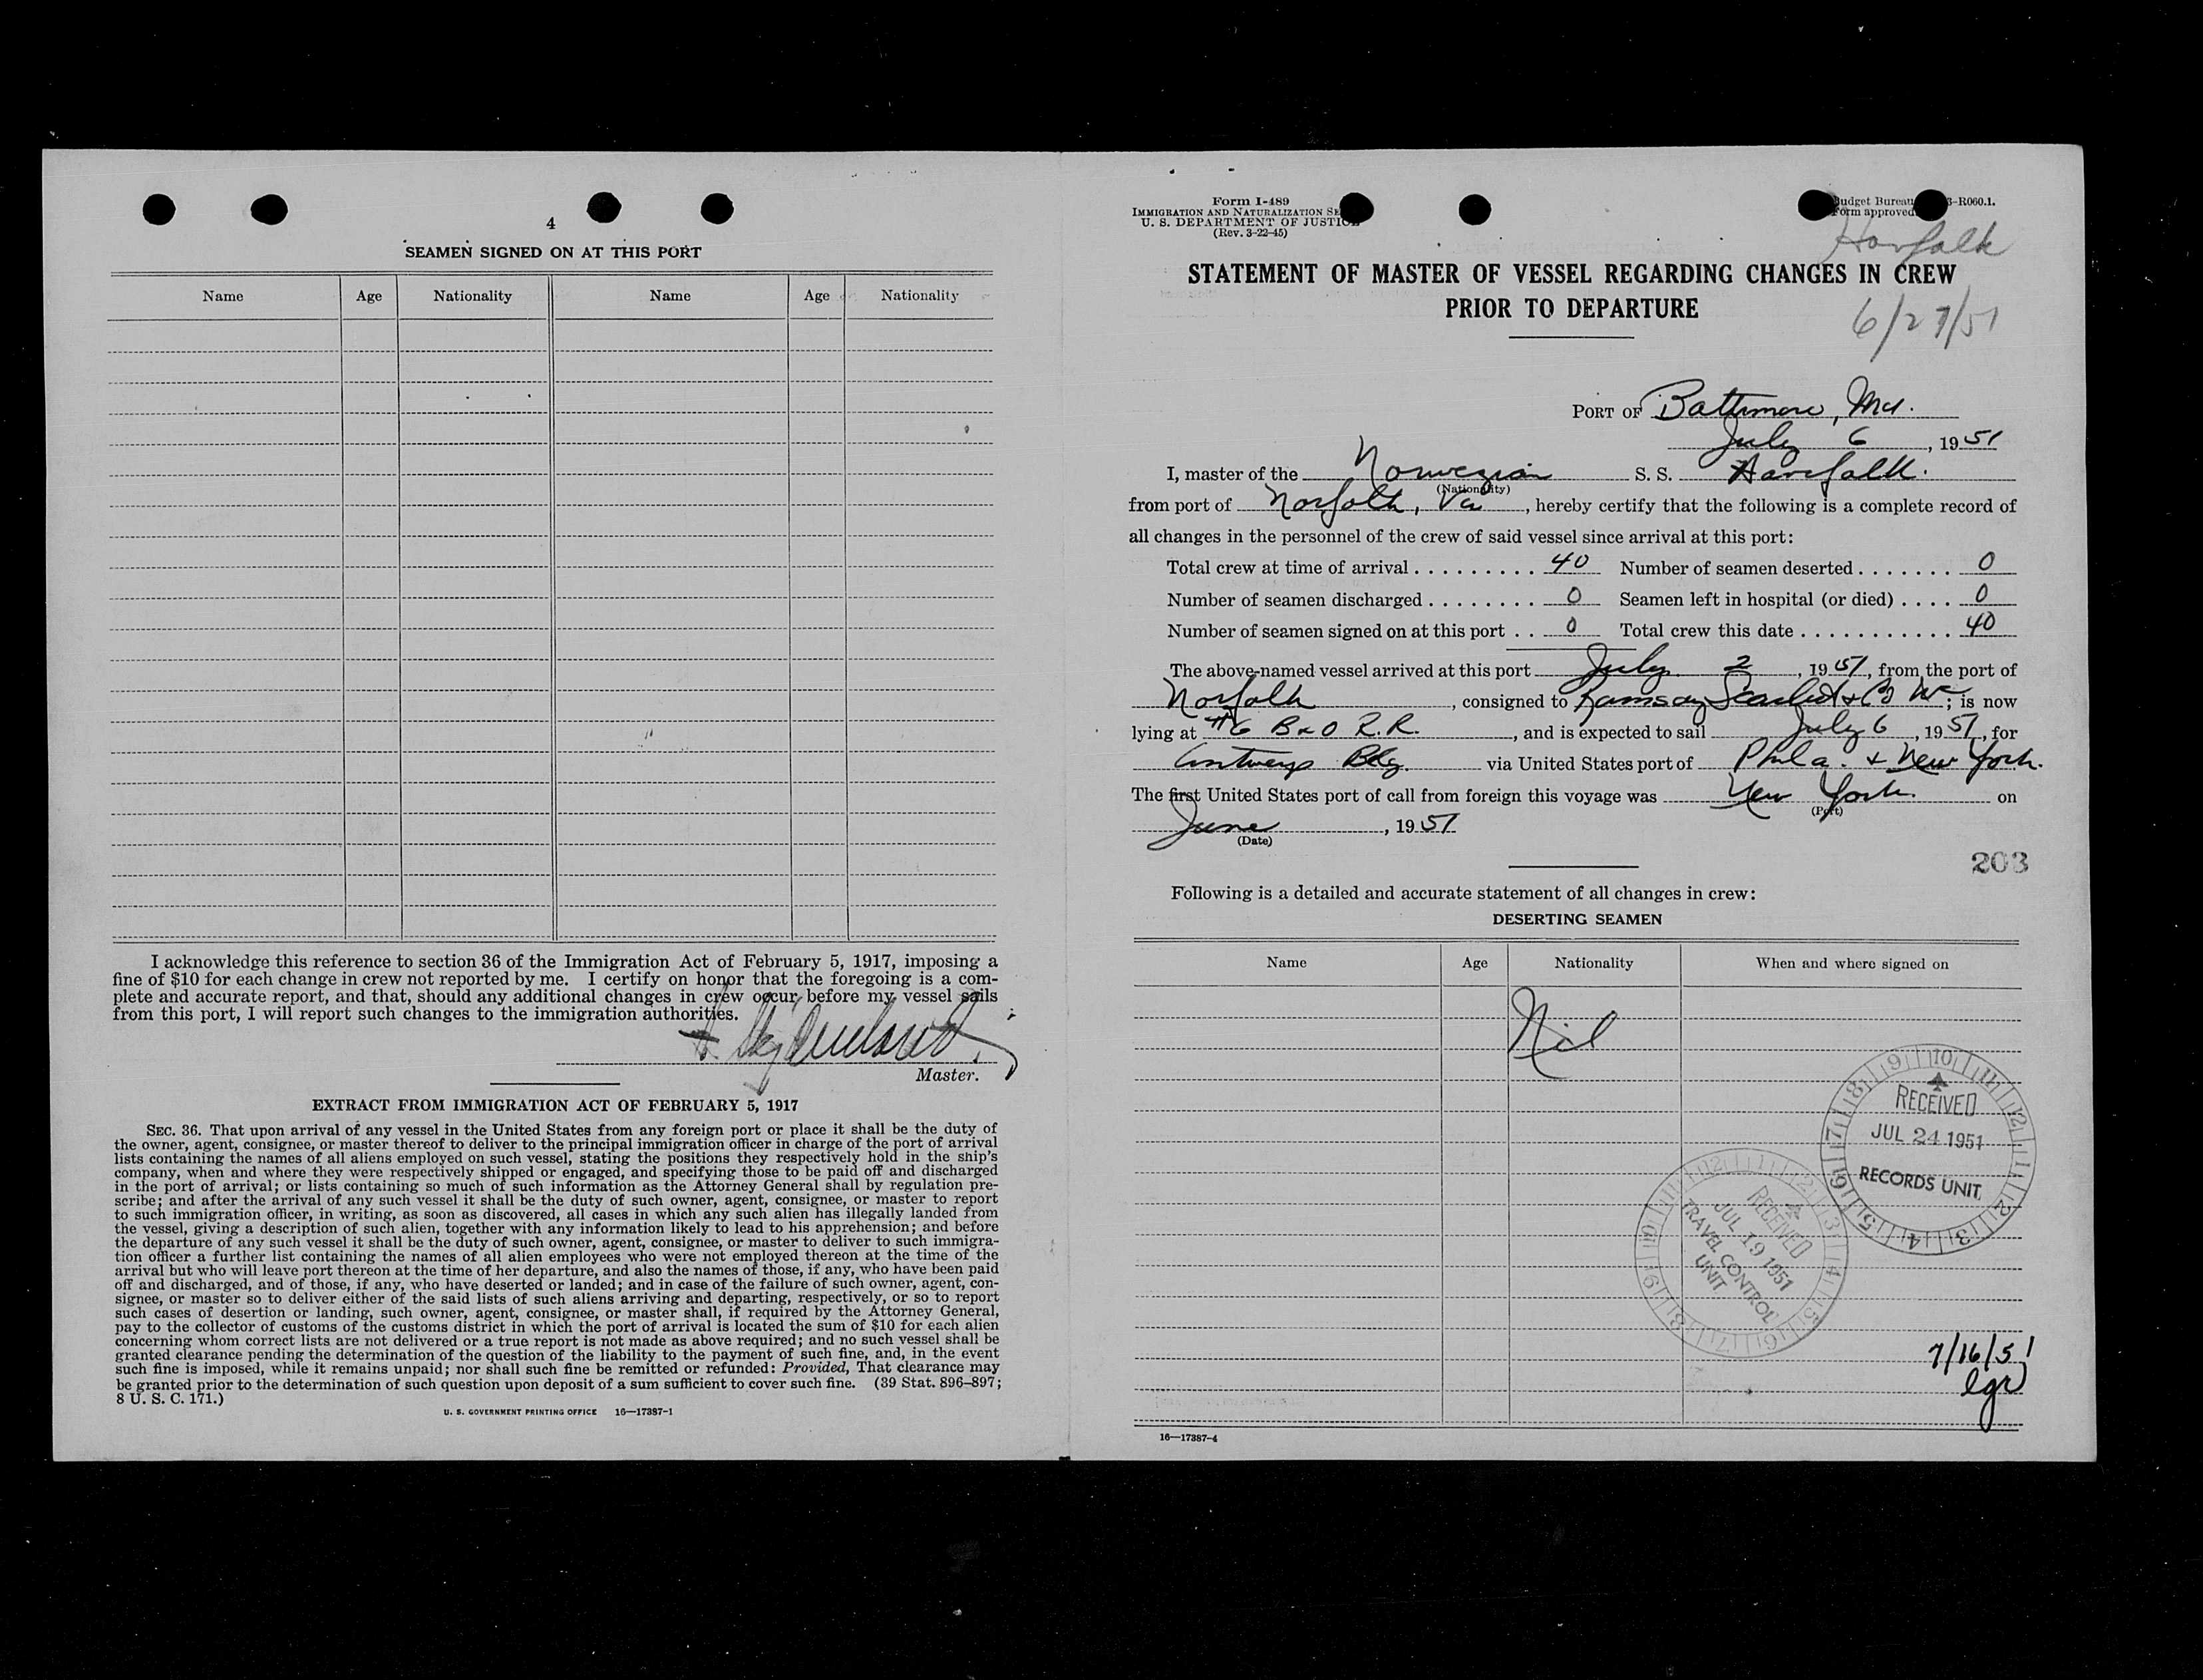 4
SEAMEN SIGNED ON AT THIS PORT
Name Age Nationality Name Age Nationality
I acknowledge this reference to section 36 of the Immigration Act of February 5, 1917, imposing a
fine of $10 for each change in crew not reported by me. I certify on honor that the foregoing is a com-
plete and accurate report, and that, should any additional changes in crew occur before my vessel sails
from this port, I will report such changes to the immigration authorities.
Master.
EXTRACT FROM IMMIGRATION ACT OF FEBRUARY 5, 1917
SEC. 36. That upon arrival of any vessel in the United States from any foreign port or place it shall be the duty of
the owner, agent, consignee, or master thereof to deliver to the principal immigration officer in charge of the port of arrival
lists containing the names of all aliens employed on such vessel, stating the positions they respectively hold in the ship's
company, when and where they were respectively shipped or engaged, and specifying those to be paid off and discharged
in the port of arrival; or lists containing so much of such information as the Attorney General shall by regulation pre-
scribe; and after the arrival of any such vessel it shall be the duty of such owner, agent, consignee, or master to report
to such immigration officer, in writing, as soon as discovered, all cases in which any such alien has illegally landed from
the vessel, giving a description of such alien, together with any information likely to lead to his apprehension; and before
the departure of any such vessel it shall be the duty of such owner, agent, consignee, or master to deliver to such immigra-
tion officer a further list containing the names of all alien employees who were not employed thereon at the time of the
arrival but who will leave port thereon at the time of her departure, and also the names of those, if any, who have been paid
off and discharged, and of those, if any, who have deserted or landed; and in case of the failure of such owner, agent, con-
signee, or master so to deliver either of the said lists of such aliens arriving and departing, respectively, or so to report
such cases of desertion or landing, such owner, agent, consignee, or master shall, if required by the Attorney General,
pay to the collector of customs of the customs district in which the port of arrival is located the sum of $10 for each alien
concerning whom correct lists are not delivered or a true report is not made as above required; and no such vessel shall be
granted clearance pending the determination of the question of the liability to the payment of such fine, and, in the event
such fine is imposed, while it remains unpaid; nor shall such fine be remitted or refunded: Provided, That clearance may
be granted prior to the determination of such question upon deposit of a sum sufficient to cover such fine. (39 Stat. 896–897;
8 U. S. C. 171.)
U. S. GOVERNMENT PRINTING OFFICE 16—17387-1
Form I-489
IMMIGRATION AND NATURALIZATION SE
U. S. DEPARTMENT OF JUSTIC
(Rev. 3-22-45)
Budget Bureau 3-R060.1.
Form approved
Havfalk
6/27/51
STATEMENT OF MASTER OF VESSEL REGARDING CHANGES IN CREW
PRIOR TO DEPARTURE
PORT OF Baltimore, Md.
July 6, 1951
I, master of the Norwegian S. S. Havfalk.
(Nationality)
from port of Norfolk, Va, hereby certify that the following is a complete record of
all changes in the personnel of the crew of said vessel since arrival at this port:
Total crew at time of arrival . . . . . . . . . 40 Number of seamen deserted . . . . . . . 0
Number of seamen discharged . . . . . . . . 0 Seamen left in hospital (or died) . . . . 0
Number of seamen signed on at this port . . 0 Total crew this date . . . . . . . . . . . 40
The above-named vessel arrived at this port July 2, 1951, from the port of
Norfolk, consigned to Ramsay Scarlett & Co Inc; is now
lying at #6 B & O R.R., and is expected to sail July 6, 1951, for
Antwerp Belg. via United States port of Phila. & New York.
The first United States port of call from foreign this voyage was New York on
(Port)
June, 1951
(Date)
203
Following is a detailed and accurate statement of all changes in crew:
DESERTING SEAMEN
Name Age Nationality When and where signed on
Nil
RECEIVED
JUL 24 1951
RECORDS UNIT
RECEIVED
JUL 19 1951
TRAVEL CONTROL
UNIT
7/16/51
lgr
16—17387-4